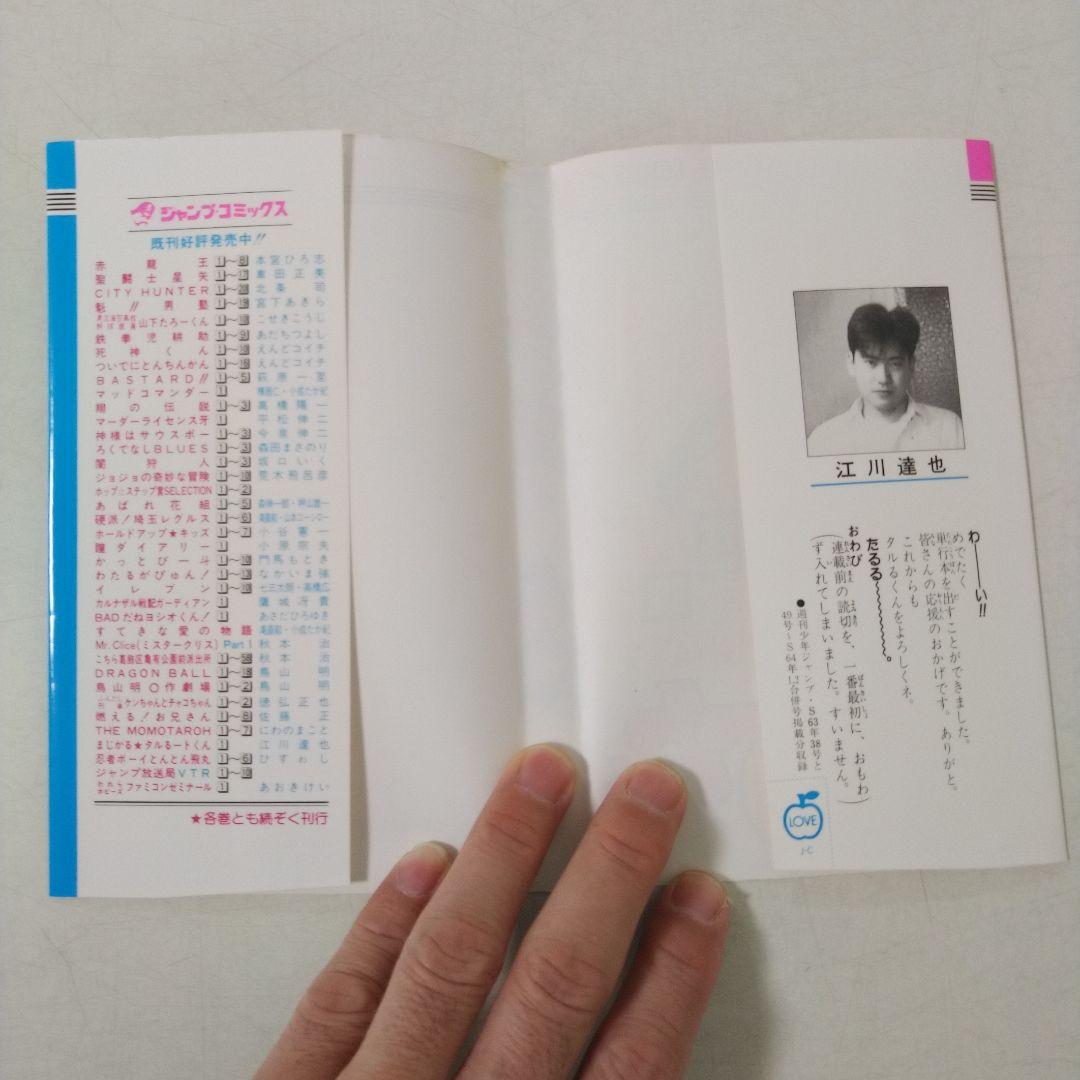 ジャンプ・コミックス
既刊好評発売中!!
赤龍王 1〜8 本宮ひろ志
聖闘士星矢 1〜 車田正美
CITY HUNTER 1〜 北条司
魁!!男塾 1〜 宮下あきら
山下たろーくん 1〜 こせきこうじ
鉄拳児耕助 1〜 あだちつよし
死神くん 1〜 えんどコイチ
ついでにとんちんかん 1〜 えんどコイチ
BASTARD!! 1〜5 萩原一至
マッドコマンダー 1 ・小成たか紀
翔の伝説 1〜3 高橋陽一
マーダーライセンス牙 1 平松伸二
神様はサウスポー 1〜3 今泉伸二
ろくでなしBLUES 1〜3 森田まさのり
闇狩人 1〜3 坂口いく
ジョジョの奇妙な冒険 1〜 荒木飛呂彦
ホップ☆ステップ賞SELECTION 1〜2
あばれ花組 1〜5
硬派!埼玉レグルス 1〜6
ホールドアップ★キッズ 1〜7 小谷憲一
瞳ダイアリー 1 小原宗夫
かっとび一斗 1〜10 門馬もとき
わたるがぴゅん! 1〜 なかいま強
イレブン 1〜 七三太朗・高橋広
カルナザル戦記ガーディアン 1 鷹城冴貴
BADだねヨシオくん! 1 あさだひろゆき
すてきな愛の物語 ・小成たか紀
Mr.Clice(ミスタークリス)Part 1 秋本治
こちら葛飾区亀有公園前派出所 1〜 秋本治
DRAGON BALL 1〜 鳥山明
鳥山明○作劇場 1〜2 鳥山明
ケンちゃんとチャコちゃん 1〜2 徳弘正也
燃える!お兄さん 1〜8 佐藤正
THE MOMOTAROH 1〜7 にわのまこと
まじかる★タルるートくん 1 江川達也
忍者ボーイとんとん飛丸 1〜6 ひすゎし
ジャンプ放送局VTR 1〜10
ファミコンゼミナール 1 あおきけい
★各巻とも続ぞく刊行
江川達也
わーーい!!
めでたく
単行本を出すことができました。
皆さんの応援のおかげです。ありがと。
これからも
タルるくんをよろしくネ。
たるる〜〜〜〜〜。
おわび
(連載前の読切を、一番最初に、おもわ
ず入れてしまいました。すいません。)
●週刊少年ジャンプ・S63年38号と
49号〜S64年1.2合併号掲載分収録
LOVE
J-C